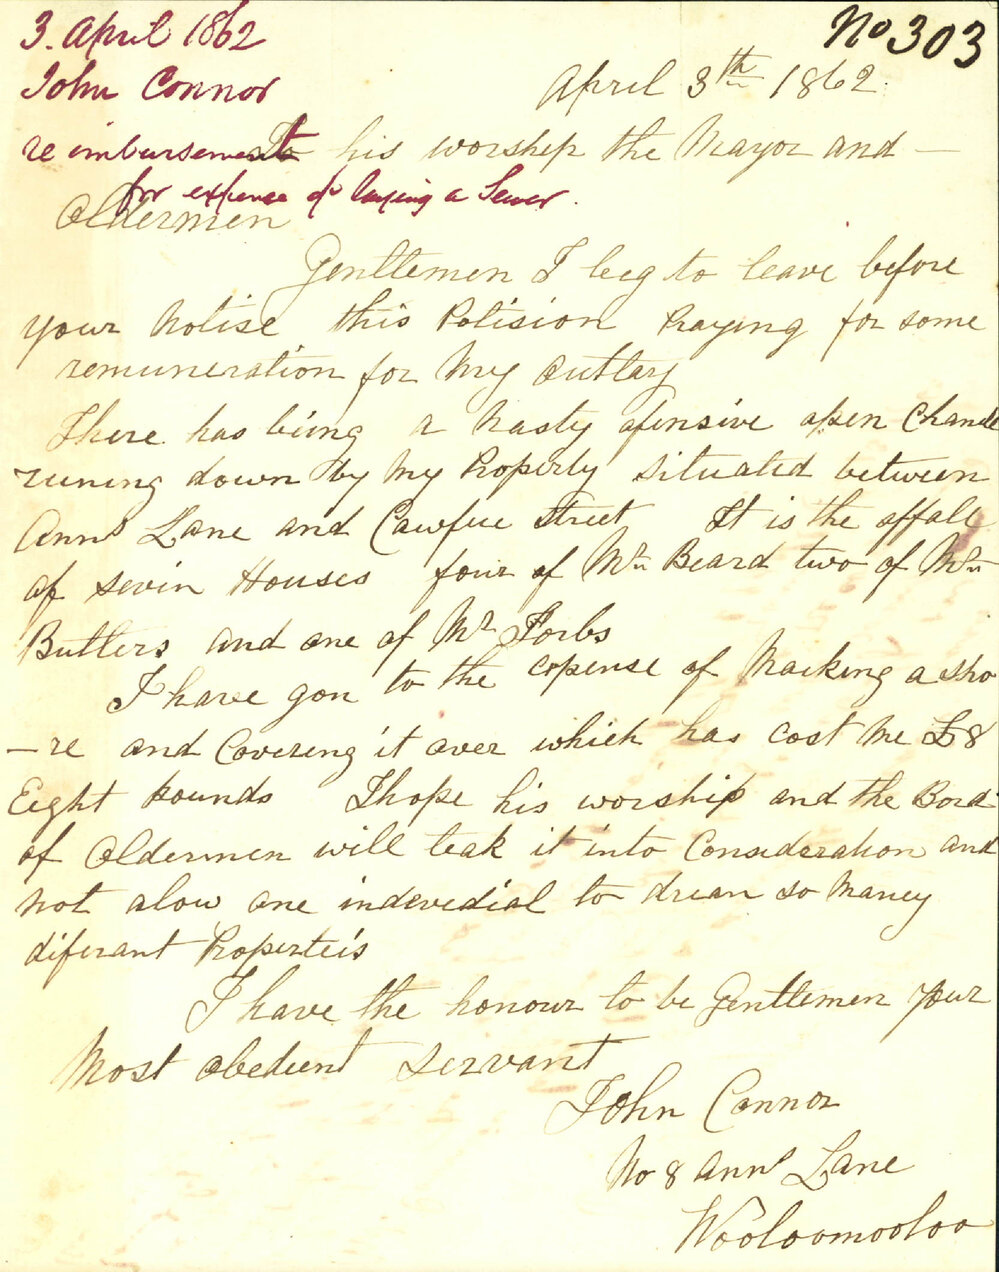 No 303
3. April 1862
John Connor
reimbursement
for expense of laying a Sewer.
April 3th 1862
To his worship the Mayor and —
Oldermen
Gentlemen I beg to leave before
your notise this Potision Praying for some
remuneration for My outlay
There has being a Nasty ofensive open Chanele
runing down by My Property situated between
Anns Lane and Cawfue Street It is the offall
of sevin Houses four of Mr Beard two of Mr
Butlers and one of Mr Forbs
I have gon to the expense of Macking a sho
-re and Covering it over which has cost me £8
Eight pounds I hope his worship and the Bord
of Oldermen will teak it into Consideration and
not alow one indevedial to drean so Maney
diferant Properteis
I have the honour to be Gentlemen your
Most obedient servant
John Connor
No 8 Anns Lane
Wooloomooloo